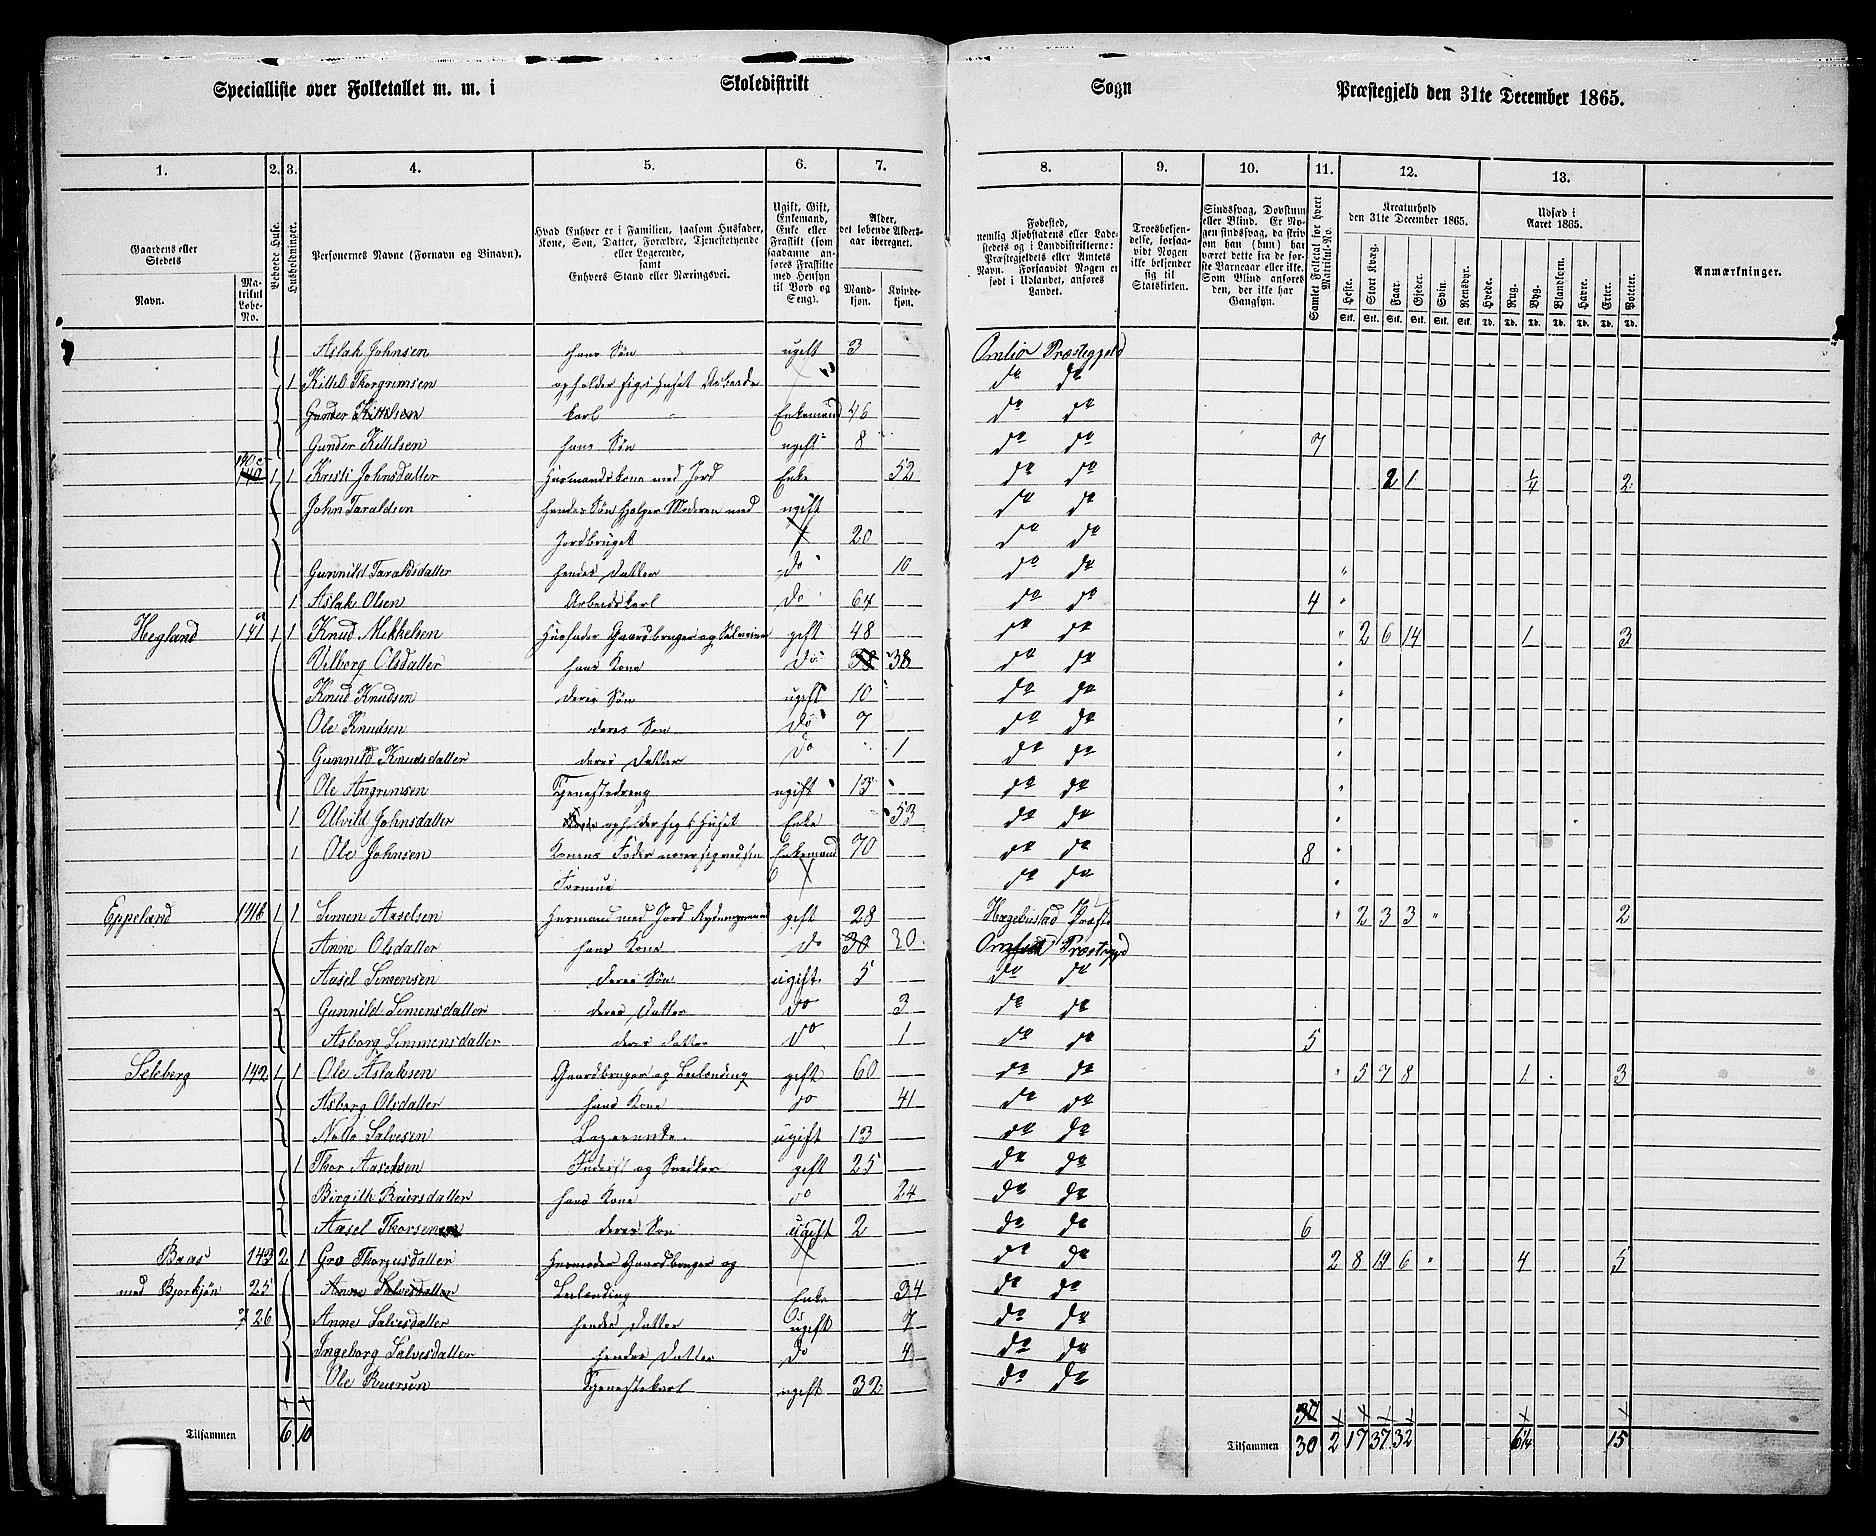 Specialliste over Folketallet m. m. i Skoledistrikt Sogn Præstegjeld den 31te December 1865.
1. 2. 3. 4. 5. 6. 7. 8. 9. 10. 11. 12. 13.
Gaardens eller Stedets
Navn.
Matrikul Løbe-No.
Beboede Huse.
Husholdninger.
Personernes Navne (Fornavn og Binavn).
Hvad Enhver er i Familien, saasom Husfader, Kone, Søn, Datter, Forældre, Tjenestetyende eller Logerende, samt Enhvers Stand eller Næringsvei.
Ugift, Gift, Enkemand, Enke eller Fraskilt (som saadanne anføres Fraskilte med Hensyn til Bord og Seng).
Alder, det løbende Aldersaar iberegnet.
Mandkjøn. Kvindekjøn.
Fødested, nemlig Kjøbstadens eller Ladestedets og i Landdistrikterne: Præstegjeldets eller Amtets Navn. Forsaavidt Nogen er født i Udlandet, anføres Landet.
Troesbekjendelse, forsaavidt Nogen ikke bekjender sig til Statskirken.
Sindssvag, Døvstum eller Blind. Er Nogen sindssvag, da skrives om han (hun) har været dette fra de første Barneaar eller ikke. Som Blind anføres den, der ikke har Gangsyn.
Samlet Folketal for hvert Matrikul-No.
Kreaturhold den 31te December 1865.
Heste. Stort Kvæg. Faar. Gjeder. Svin. Rensdyr.
Stk. Stk. Stk. Stk. Stk. Stk.
Udsæd i Aaret 1865.
Hvede. Rug. Byg. Blandkorn. Havre. Erter. Poteter.
Td. Td. Td. Td. Td. Td. Td.
Anmærkninger.
Aslak Johnsen hans Søn ugift 3 Omlior Præstegjeld
1 Kittel Thorgrimsen opholder sig i Huset Arbeide do do
Gunder Kittelsen karl Enkemand 46 do do
Gunder Kittelsen hans Søn ugift 8 do do 7
140 1 1 Kristi Johnsdatter Husmandskone med Jord Enke 52 do do 2 1 1/4 2
John Taraldsen hendes Søn hjelper Moderen med ugift do do
Jordbruget 20 do do
Gunnild Taraldsdatter hendes Datter do 10 do do
1 Aslak Olsen Arbeidskarl do 64 do do 4
Hegland 141a 1 1 Knud Mikkelsen Husfader Gaardbruger og Selveier gift 48 do do 2 6 14 1 3
Vilborg Olsdatter hans Kone do 38 38 do do
Knud Knudsen deres Søn ugift 10 do do
Ole Knudsen deres Søn do 7 do do
Gunnild Knudsdatter deres Datter do 1 do do
Ole Angrimsen Tjenestedreng ugift 13 do do
1 Ulvild Johnsdatter opholder sig i Huset Enke 53 do do
1 Ole Johnsen Konens Fader nærer sig ved sin Enkemand 70 do do 8
Formue do do
Eppeland 141b 1 1 Simen Aaselsen Husmand med Jord gift 28 Hægebustad Præst 2 3 3 2
Anne Olsdatter hans Kone do 30 30 Præstegjd
Aasel Simensen deres Søn ugift 5 do do
Gunnild Simensdatter deres Datter do 3 do do
Asborg Simmensdatter deres Datter do 1 do do 5
Seleberg 142 1 1 Ole Aslaksen Gaardbruger og Leilænding gift 60 do do 5 7 8 1 3
Asberg Olsdatter hans Kone do 41 do do
Salvesen Logerende ugift 13 do do
1 Thor Aaselsen Inderst og Snedker gift 25 do do
Birgith Reiersdatter hans Kone do 24 do do
Aasel Thorsen deres Søn ugift 2 do do 6
Baas 143 2 1 Gro Thorjusdatter Husmoder Gaardbruger og do do 2 8 19 6 4 5
med Bjorkjøn 25 Anne Salvesdatter Leilænding Enke 34 do do
26 Anne Salvesdatter hendes Datter ugift 7 do do
Ingeborg Salvesdatter hendes Datter do 4 do do
Ole Reiersen Tjenestekarl ugift 32 do do
Tilsammen 6 10 Tilsammen 30 30 2 17 37 32 6 1/4 15